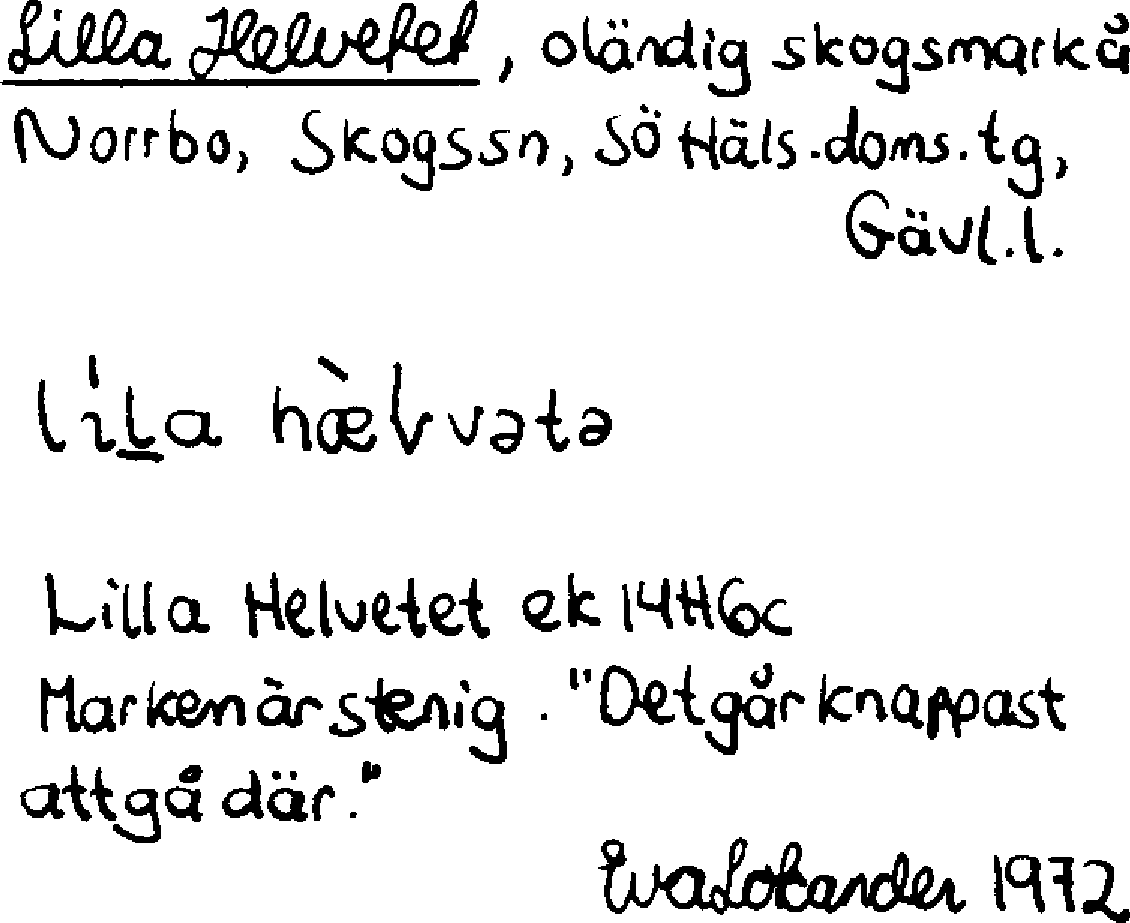 Lilla Helvetet, oländig skogsmark å
Norrbo, Skogs sn, Sö Häls. doms. tg,
Gävl. l.
Lilla Helvetet ek 14H6c
Marken är stenig. "Det går knappast
att gå där."
Eva Lokander 1972